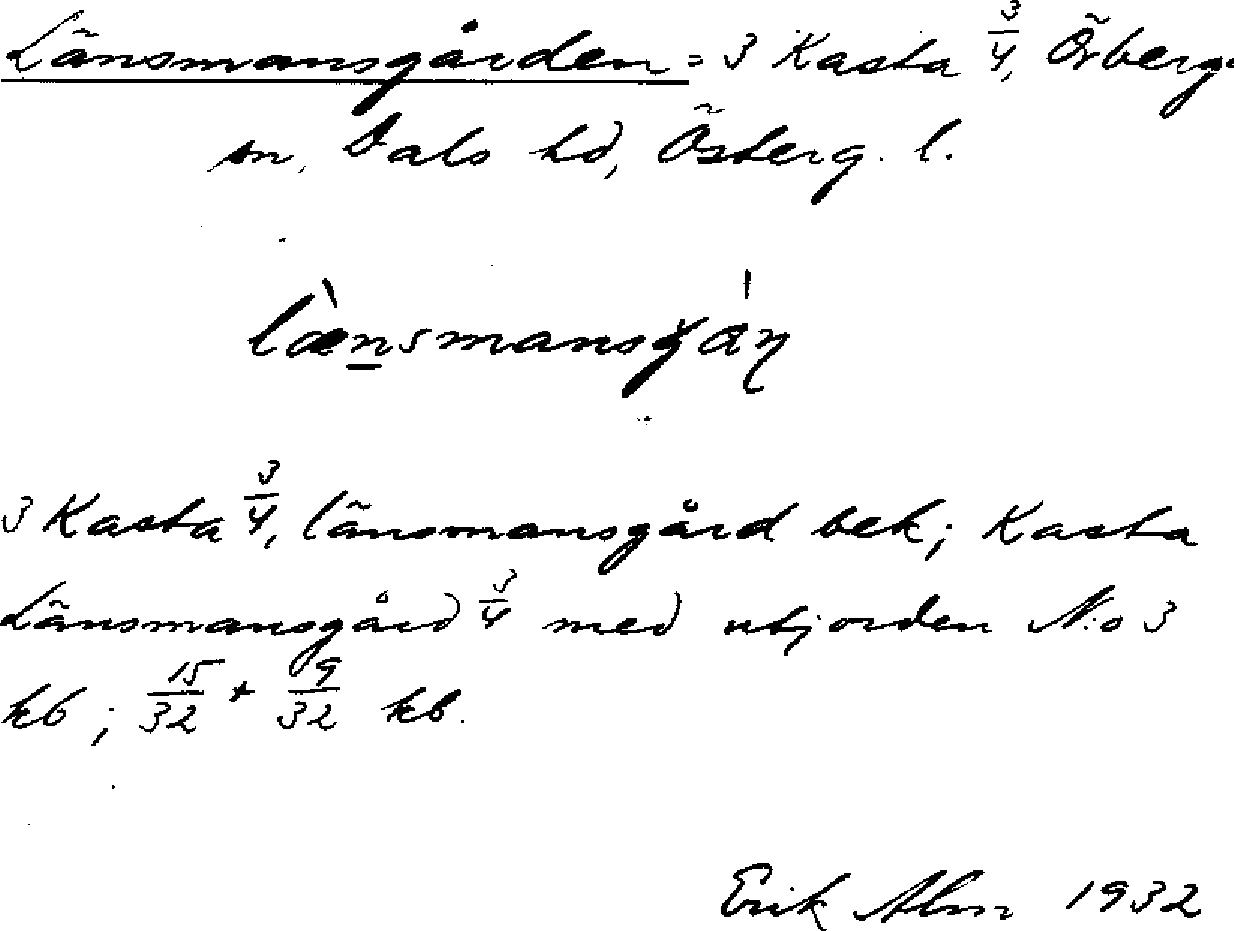 Länsmansgården = 3 Kasta 3/4, Örberga
sn, Dals hd, Österg. l.
lænsmansgan
3 Kasta 3/4, länsmansgård bek; Kasta
Länsmansgård 3/4 med utjorden N:o 3
kb; 15/32 + 19/32 kb.
Erik Alm 1932